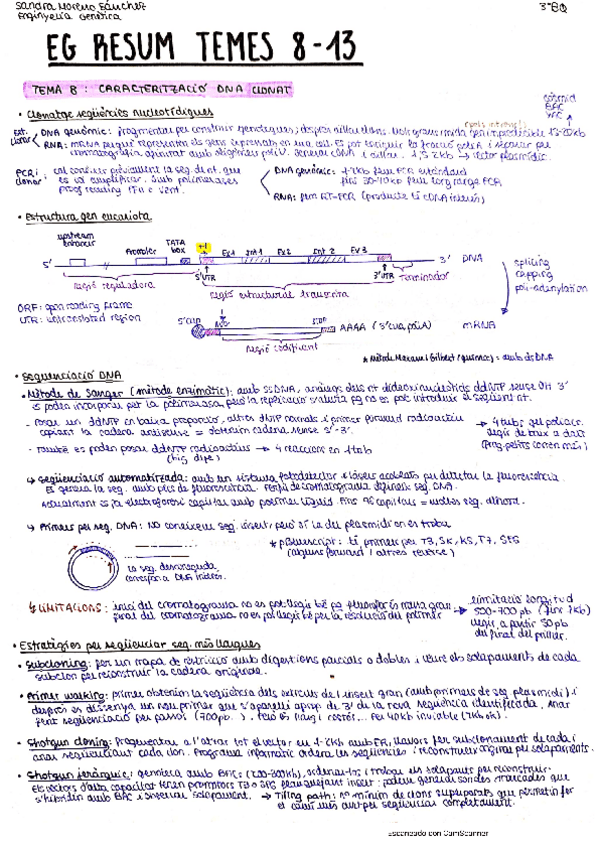 Sandra Moreno Sánchez
Enginyeria Genètica
3º BQ
EG RESUM TEMES 8-13
TEMA 8: CARACTERITZACIÓ DNA CLONAT
• Clonatge seqüències nucleotídiques
DNA genòmic: fragmentar per construir genoteques; després aïllar clons.
còsmid
BAC
YAC
RNA: mRNA perquè representen els gens expressats en una cèl.
1,5-2kb → vector plasmídic.
PCR i clonar
cal conèixer prèviament la seq. de nt. que
es vol amplificar. Amb polimerases
DNA genòmic: 1-2kb fem PCR estàndard
fins 30-40kb fem long range PCR
RNA: fem RT-PCR (producte és cDNA)
• Estructura gen eucariota
upstream
enhancer
Promoter
TATA
box
+1
Ex 1
Int 1
Ex 2
Int 2
Ex 3
5'
3'
DNA
5'UTR
3'UTR
Terminador
regió reguladora
regió estructural transcrita
splicing
capping
poli-adenylation
ORF: open reading frame
UTR: untranslated region
5'cap
AUG
STOP
AAAA (3'cua poliA)
mRNA
regió codificant
★ Mètode Maxam i Gilbert (químic): amb ds DNA
• Seqüenciació DNA
- Mètode de Sanger (mètode enzimàtic): amb ssDNA, anàlegs dels nt didesoxinucleòtids ddNTP sense OH 3'
es poden incorporar per la polimerasa, però la replicació s'atura pq no es pot introduir el següent nt.
- Posar un ddNTP en baixa proporció, altres dNTP normals i primer marcat radioactiu
copiant la cadena antisense = obtenim cadena sense 5'-3'.
→ 4 tubs gel poliacr.
llegir de baix a dalt
(frag. petits corren més)
- També es poden posar ddNTP radioactius → 4 reaccions en 1 tub
(big dye)
↳ Seqüenciació automatitzada: amb un sistema fotodetector i làsers acoblats per detectar la fluorescència.
Es genera la seq. amb pics de fluorescència.
Actualment es fa electroforesi capil·lar amb polímer líquid. Fins 96 capil·lars = moltes seq. alhora.
↳ Primers per seq. DNA: NO coneixem seq. insert però sí la del plasmidi on es troba
la seq. desconeguda
correspon a DNA insert.
★ pBluescript: té primers per T3, SK, KS, T7, SP6
(alguns forward / altres reverse)
↳ LIMITACIONS: inici del cromatograma no es pot llegir bé pq
final del cromatograma no es pot llegir bé per la resolució del polímer
limitació longitud
500-700 pb (fins 1kb)
llegir a partir 50 pb
del final del primer.
• Estratègies per seqüenciar seq. més llargues
- Subcloning: fer un mapa de restricció amb digestions parcials o dobles i veure els solapaments de cada
subclon per reconstruir la cadena original.
- Primer walking: primer obtenim la seqüència dels extrems de l'insert gran (amb primers de seq. plasmidi) i
després es dissenya un nou primer que s'aparelli aprop de 3' de la nova seqüència identificada. Anar
fent seqüenciació per passos (700pb...), però és llarg i costós... Per 40kb inviable (7kb ok).
- Shotgun cloning: Fragmentar a l'atzar tot el vector en 1-2kb amb ER, llavors fer subclonament de cada i
anar seqüenciant cada clon. Programa informàtic ordena les seqüències i reconstrueix original per solapaments.
- Shotgun jeràrquic: genoteca amb BACs (100-300kb), ordenar-los i trobar els solapants per reconstruir.
Els vectors d'alta capacitat tenen promotors T3 o SP6 flanquejant insert: podem generar sondes marcades que
s'hibriden amb BAC i s'observa solapament. → Tiling path: nº mínim de clons superposats que permetin fer
el camí més curt per seqüenciar completament.
Escaneado con CamScanner